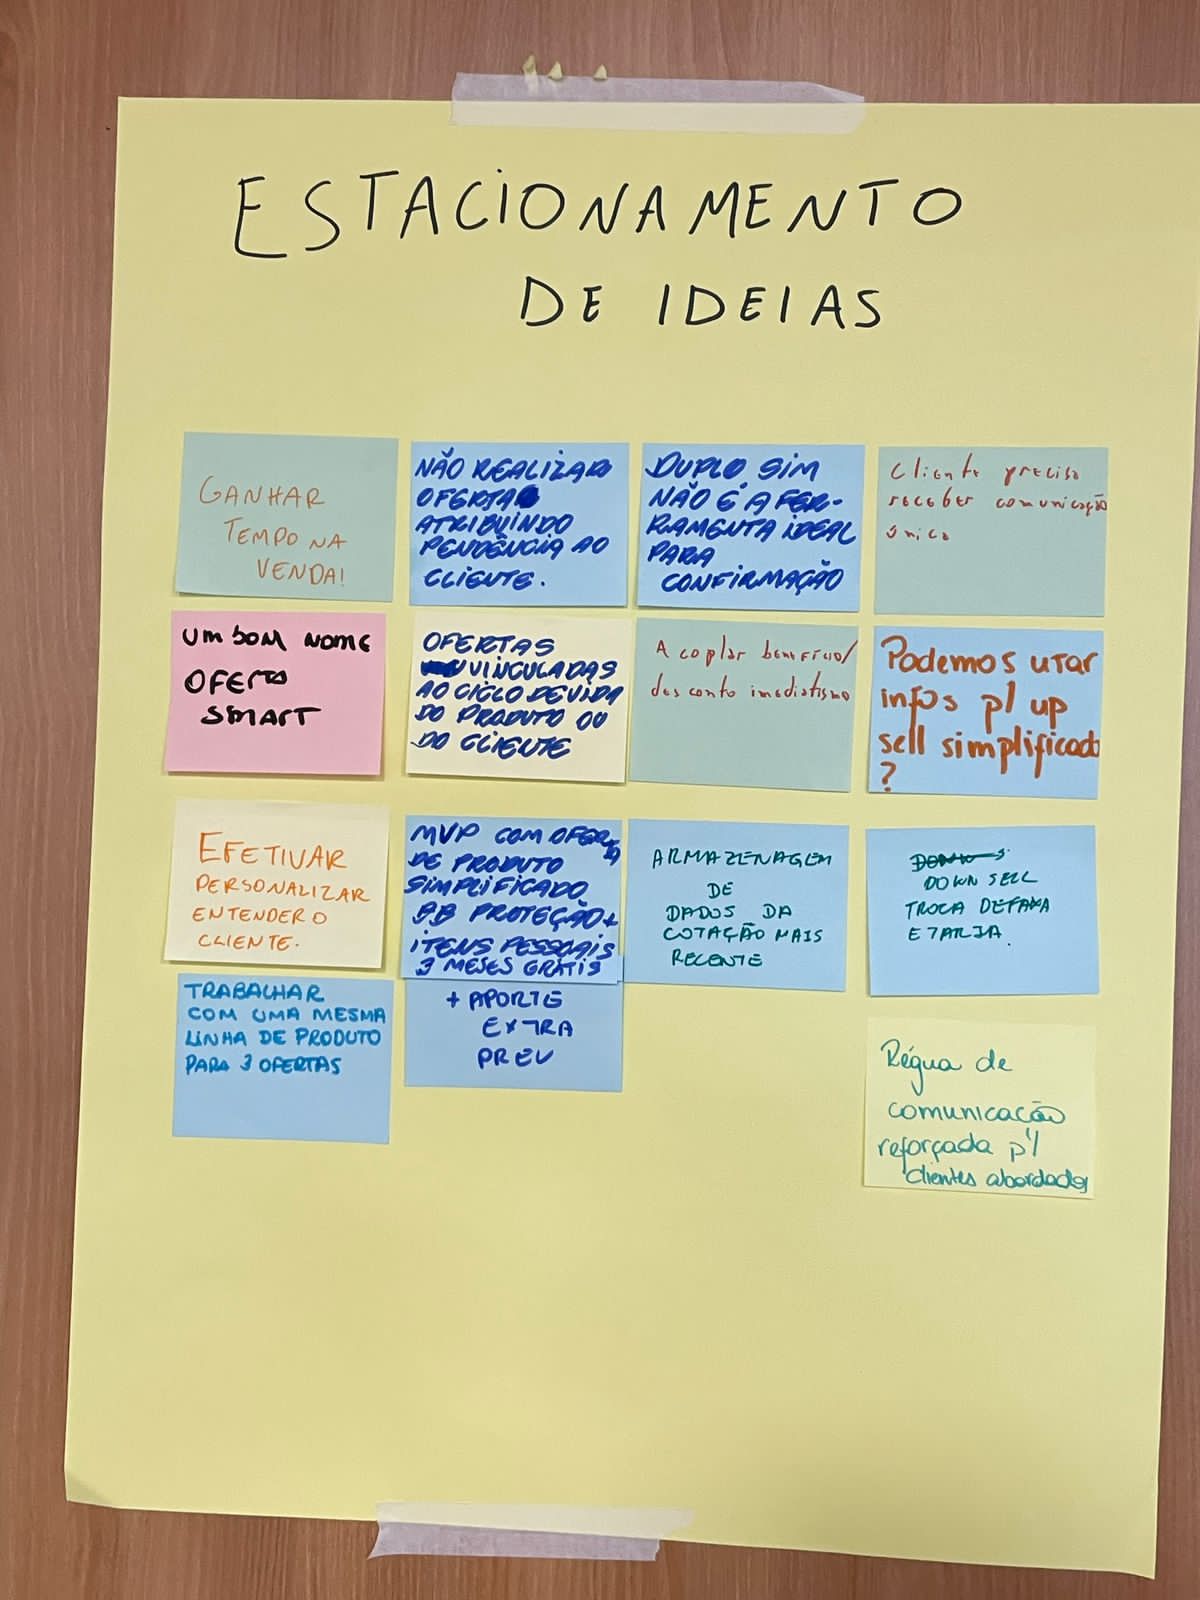 ESTACIONAMENTO
DE IDEIAS
GANHAR
TEMPO NA
VENDA!
NÃO REALIZAR
OFERTA
ATRIBUINDO
PENDÊNCIA AO
CLIENTE.
DUPLO SIM
NÃO É A FER-
RAMENTA IDEAL
PARA
CONFIRMAÇÃO
Cliente precisa
receber comunicação
única
UM BOM NOME
OFERTA
SMART
OFERTAS
VINCULADAS
AO CICLO DE VIDA
DO PRODUTO OU
DO CLIENTE
Acoplar benefício/
desconto imediatismo
Podemos usar
infos p/ up
sell simplificado
?
EFETIVAR
PERSONALIZAR
ENTENDER O
CLIENTE.
MVP COM OFERTA
DE PRODUTO
SIMPLIFICADO
BB PROTEÇÃO +
ITENS PESSOAIS
3 MESES GRÁTIS
+ APORTE
EXTRA
PREV
ARMAZENAGEM
DE
DADOS DA
COTAÇÃO MAIS
RECENTE
DOWN SELL
TROCA DE FAIXA
ETARIA.
TRABALHAR
COM UMA MESMA
LINHA DE PRODUTO
PARA 3 OFERTAS
Régua de
comunicação
reforçada p/
clientes abordados